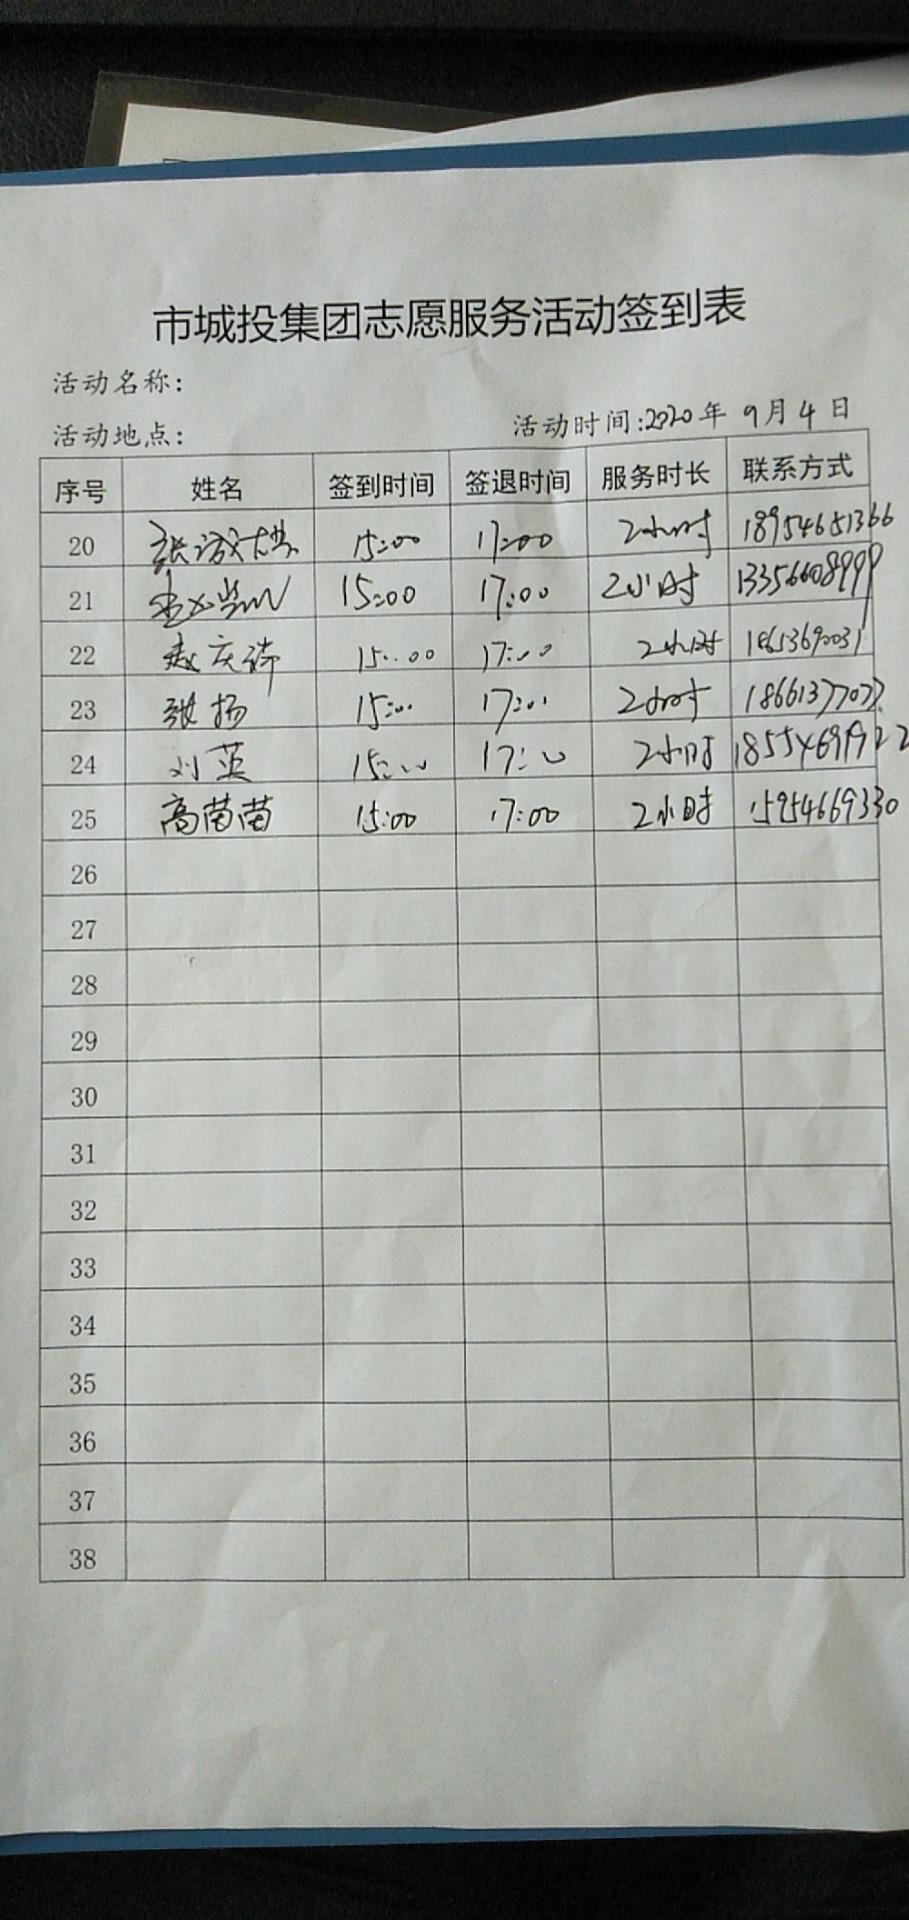 市城投集团志愿服务活动签到表
活动名称:
活动地点: 活动时间:2020年 9月4日
序号 姓名 签到时间 签退时间 服务时长 联系方式
20 15:00 17:00 2小时 18954651366
21 15:00 17:00 2小时 13356608999
22 15:00 17:00 2小时
23 张扬 15:00 17:00 2小时
24 刘英 15:00 17:00 2小时
25 高苗苗 15:00 17:00 2小时 15954669330
26
27
28
29
30
31
32
33
34
35
36
37
38